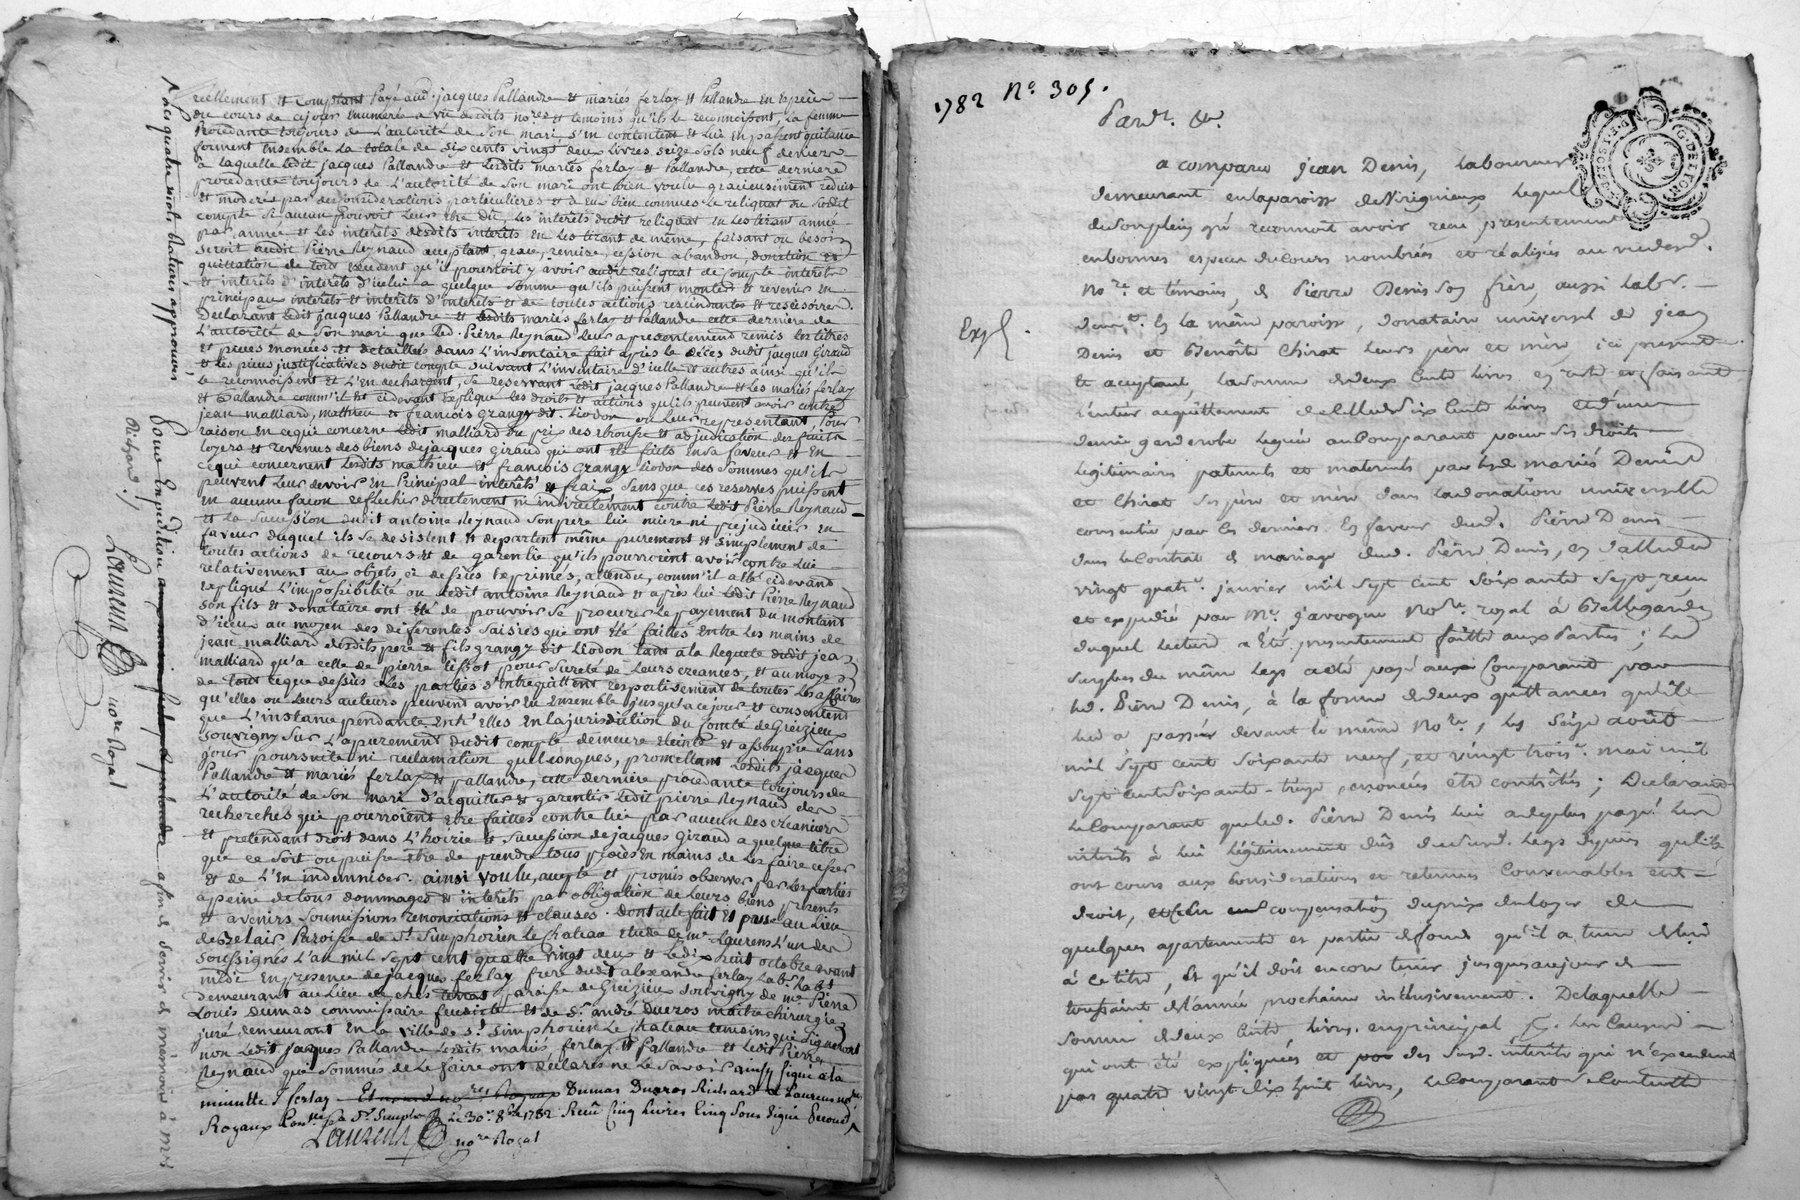 réellement et comptant payé aud. jacques Pallandre et mariés ferlay et Pallandre en espèces
du cours de cejour enumerée a vû desdits no.res et temoins qu'ils le reconnoissent, La femme
procedante toujours de L'autorité de Son mari, s'en contentent et Lui en passent quitance
forment ensemble La totale de Six cents vingt deux Livres Seize Sols neuf deniers
a laquelle ledit jacques Pallandre et Lesdits mariés ferlay et Pallandre, cette derniere
procedante toujours de L'autorité de Son mari ont bien voulu gracieusement reduire
et moderer par des considerations particulieres et d'eux bien connues Le reliquat du Sudit
compte Si aucun pouvoit Leur être dû, Les interets dudit reliquat en Les tirant année
par année et les interets desdits interets en les tirant de même, faisant ou besoin
seroit audit Pierre Reynaud acceptant, grace, remise, cession abandon, donation et
quittation de tout excedent qu'il pourroit y avoir audit reliquat de compte interets
et interets d'interets d'icelui a quelque Somme qu'ils puissent monter et revenir en
principaux interets et interets d'interets et de toutes actions rescindantes et rescisoires.
Declarant Ledit jacques Pallandre et Lesdits mariés ferlay et Pallandre cette derniere de
L'autorité de Son mari que Led. Pierre Reynaud Leur a presentement remis Les titres
et pieces enoncées et detaillées dans L'inventaire fait après Le déces dudit jacques Giraud
et Les pieces justificatives dudit compte Suivant L'inventaire d'icelle et autres ainsi qu'ils
Le reconnoissent et L'en dechargent, Se reservant Ledit jacques Pallandre et Les mariés ferlay
et Pallandre comm'il est cidevant Expliqué Les droits et actions qu'ils peuvent avoir contre
jean malliard, mathieu et francois Grangy dit Liodon ou Leur representant, Pour
raison en cequi concerne Ledit malliard du prix des et adjudication des fruits
Loyers et revenus des biens dejacques giraud qui ont été faits en Sa faveur et En
cequi concernent Lesdits mathieu et francois Grangy Liodon des Sommes qu'ils
peuvent Leur devoir en Principal interets et fraix Sans que ces reserves puissent
en aucune facon reflechir directement ni indirectement contre Ledit Pierre Reynaud
et La Succession dudit antoine Reynaud Son pere Lui nuire ni prejudicier en
faveur duquel ils Se desistent et departent même purement et Simplement de
toutes actions de recours et de garentie qu'ils pourroient avoir contre Lui
relativement aux objets ci dessus exprimés, attendu, comm'il a été cidevant
expliqué L'impossibilité ou Ledit antoine Reynaud et après lui Ledit Pierre Reynaud
Son fils et donataire ont été de pouvoir Se procurer Le payement du montant
d'iceux au moyen des differentes Saisies qui ont été faittes Entre Les mains de
jean malliard desdits pere et fils grangy dit Liodon tant a la Requete dudit jean
malliard qu'a celle de pierre tissot pour Sureté de Leurs creances, et au moyen
de tout ceque dessus Les parties S'entrequittent respectivement de toutes Les affaires
qu'elles ou Leurs auteurs peuvent avoir eu ensemble jusqu'a cejour et consentent
que L'instance pendante entr'elles en La jurisdiction du Comté de Grezieux
Souvigny Sur L'apurement dudit compte demeure eteinte et assoupie Sans
jour poursuite ni reclamation quelconques, promettant Lesdits jacques
Pallandre et mariés ferlay et pallandre, cette derniere procedante toujours de
L'autorité de Son mari d'acquitter et garentir Ledit pierre Reynaud des
recherches qui pourroient etre faittes contre lui par aucun des creanciers
et pretendant droit dans L'hoirie et Succession dejacques Giraud a quelque titre
que ce Soit ou puisse être de prendre tous procès en mains de Les faire cesser
et de L'en indemniser. ainsi voulu, accepté et promis observer par Les parties
a peine de tous dommages et interets par obligation de Leurs biens presents
et avenirs Soumissions renonciations et clauses. Dont acte fait et passé au Lieu
deBelair Paroisse de St. Simphorien le Chateau etude de me. Laurens L'un des
Soussignés L'an mil Sept cent quatre vingt deux et Ledix huit octobre avant
midi en presence de jacques ferlay frere dudit alexandre ferlay Lab. habt.
demeurant au Lieu de chés terras paroisse de Grezieu Souvigny de me Pierre
Louis dumas commissaire feudiste et de Sr. andré ducros maitre chirurgien
juré demeurant en La ville de St. Simphorien Le chateau temoins qui Signeront
non Ledit jacques Pallandre Lesdits mariés ferlay et Pallandre et Ledit Pierre
Reynaud que Sommés de Le faire ont declarés ne Le Savoir ainsy Signé a la
minutte J ferlay Dumas Ducros Richard et Laurens no.res
Royaux Con.lé a St. Simph.n Le 30.e 8.bre 1782 Reçu Cinq livres Cinq Sous Signé
Laurens no.re Royal
A Les quatre mots Raturés approuvés
Pour Expedition afin de Servir de mémoire à me.
Richard ./.
Laurens no.re Royal
1782 No. 305.
Pardt. &a.
a comparu jean Denis, Laboureur
demeurant en la paroisse de Virignieux, Lequel
deson plein gré reconnoit avoir reçu presentement
en bonnes especes du cours nombrées et réalisées au vu desd.
no.re et témoins, de Pierre Denis son frère, aussi labr.
demt. en la même paroisse, donataire universel de jean
Exp.
Denis et Benoîte Chirat leurs père et mère, ici present
et acceptant, La somme de deux cents livres en reste et faisant
l'entier acquittement de celle de six cents livres et d'une
demie garderobe leguée au comparant pour ses droits
legitimaires paternels et maternels par lesd mariés Denis
et Chirat ses père et mère dans la donation universelle
consentie par ces derniers en faveur dud. Pierre Denis
dans le contrat de mariage dud. Pierre Denis, en datte du
vingt quatre. janvier mil sept cent soixante sept, reçu
et expedié par Me. javogue no.re royal à Bellegarde
duquel lecture a été presentement faitte aux Parties; Le
surplus du même legs a été payé audit Comparant par
led. Pierre Denis, à la forme de deux quittances qu'il
lui a passées devant le même No.re, les seize août
mil sept cent soixante neuf, et vingt trois. mai mil
sept cent soixante-treize, enoncées être contrôlées; Declarant
le Comparant que led. Pierre Denis lui a de plus payé les
interêts à lui légitimement dûs dudit. Legs depuis qu'ils
ont cours aux considerations et retenues Convenables et de
droit, et en compensation du prix du loyer de
quelques appartements et partie de fonds qu'il a tenu de lui
à ce titre, et qu'il doit encore tenir jusques au jour de
toussaint de l'année prochaine inclusivement. De laquelle
somme de deux cents livres en principal, Les causes
qui ont été expliquées et des susd. interêts qui n'excedent
pas quatre vingt dix huit livres, le Comparant se contente
G. DE LYON